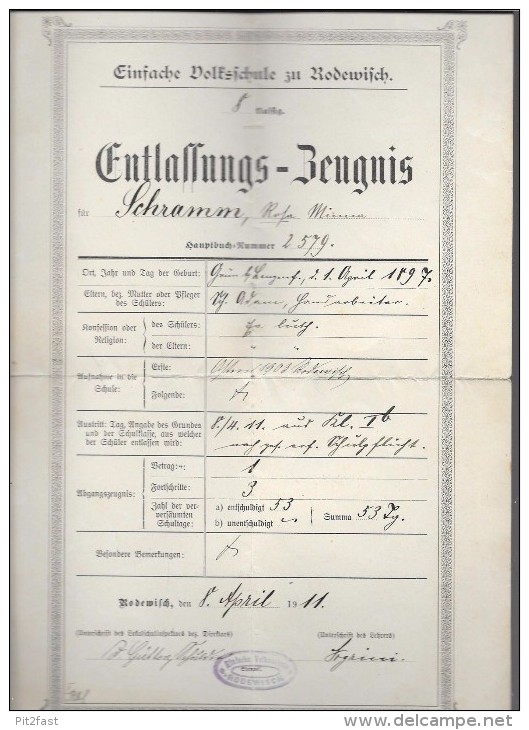 Einfache Volksschule zu Rodewisch.
8 klassig.
Entlassungs-Zeugnis
für Schramm, Rosa Minna
Hauptbuch-Nummer 2579.
Ort, Jahr und Tag der Geburt: d. 1. April 1897.
Eltern, bez. Mutter oder Pfleger des Schülers: Adam, Handarbeiter.
Konfession oder Religion:
des Schülers: Ev. luth.
der Eltern: " "
Aufnahme in die Schule:
Erste: Ostern 1903 Rodewisch
Folgende:
Austritt: Tag, Angabe des Grundes und der Schulklasse, aus welcher der Schüler entlassen wird:
8./4. 11. aus Kl. Ib
nach erf. Schulpflicht.
Abgangszeugnis:
Betragen: 1
Fortschritte: 3
Zahl der versäumten Schultage:
a) entschuldigt 53
b) unentschuldigt –
Summa 53 Tg.
Besondere Bemerkungen:
Rodewisch, den 8. April 1911.
(Unterschrift des Lokalschulinspektors bez. Direktors)
(Unterschrift des Lehrers)
Einfache Volksschule
RODEWISCH
Pit2fast
www.delcampe.net